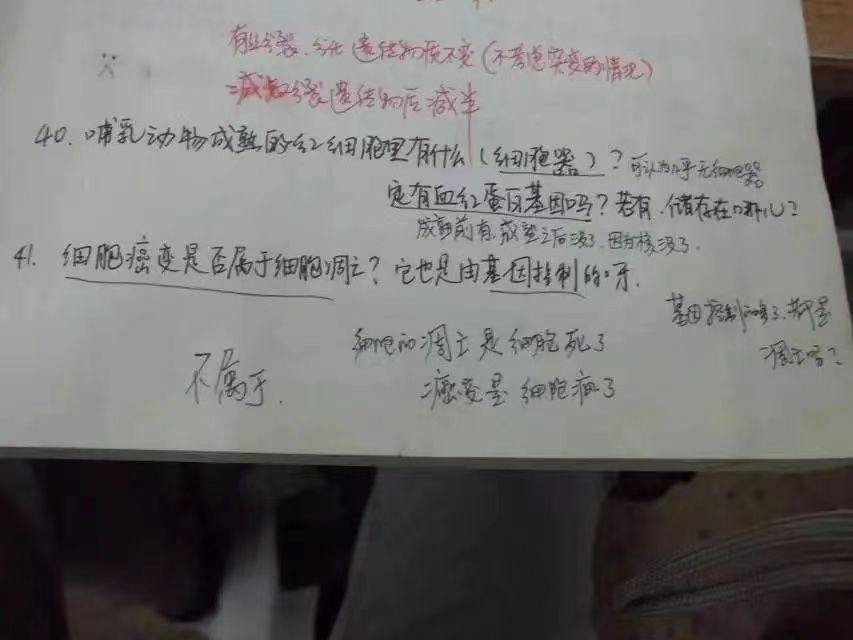 有丝分裂、分化 遗传物质不变(不考虑突变的情况)
减数分裂遗传物质减半
40. 哺乳动物成熟的红细胞里有什么(细胞器)? 可认为几乎无细胞器
它有血红蛋白基因吗?若有,储存在哪儿?
成熟前有,成熟之后没了,因为核没了.
41. 细胞癌变是否属于细胞凋亡?它也是由基因控制的呀.
基因控制的多了,都是
凋亡吗?
细胞的凋亡是细胞死了
不属于.
癌变是 细胞疯了